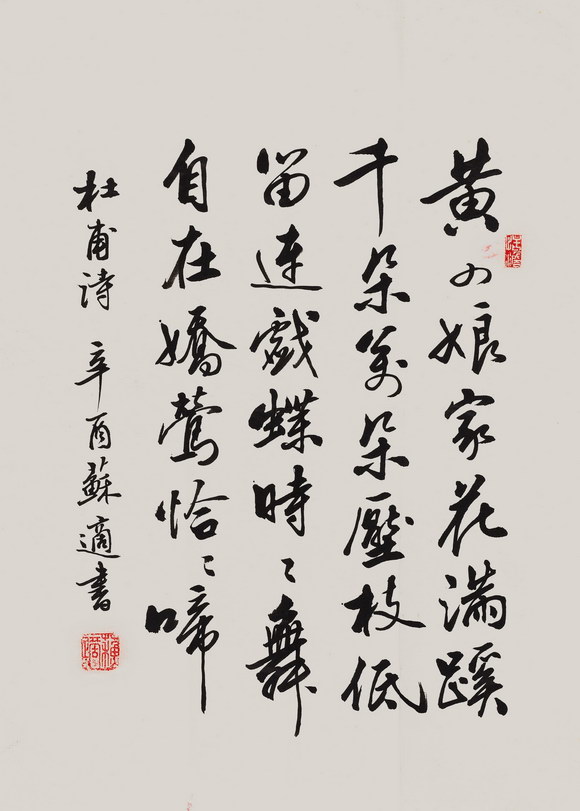 黄四娘家花満蹊
千朵萬朵壓枝低
留連戯蝶時〻舞
自在嬌鶯恰〻啼
杜甫詩 辛酉蘇適書